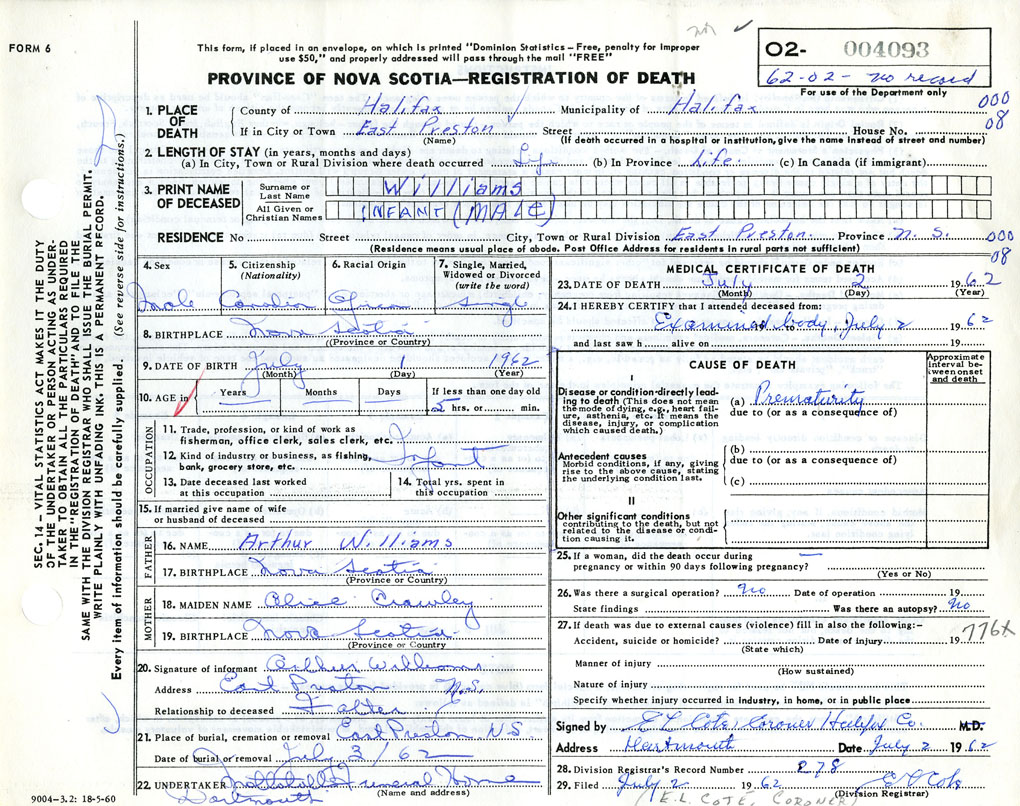 not ✓
FORM 6
This form, if placed in an envelope, on which is printed "Dominion Statistics – Free, penalty for improper
use $50," and properly addressed will pass through the mail "FREE"
PROVINCE OF NOVA SCOTIA—REGISTRATION OF DEATH
O2- 004093
62-02- no record
For use of the Department only
000
08
SEC. 14 – VITAL STATISTICS ACT MAKES IT THE DUTY
OF THE UNDERTAKER OR PERSON ACTING AS UNDER-
TAKER TO OBTAIN ALL THE PARTICULARS REQUIRED
IN THE "REGISTRATION OF DEATH" AND TO FILE THE
SAME WITH THE DIVISION REGISTRAR WHO SHALL ISSUE THE BURIAL PERMIT.
WRITE PLAINLY WITH UNFADING INK. THIS IS A PERMANENT RECORD.
Every item of information should be carefully supplied. (See reverse side for instructions.)
1. PLACE OF DEATH
County of Halifax Municipality of Halifax
If in City or Town East Preston Street House No.
(Name) (If death occurred in a hospital or institution, give the name instead of street and number)
2. LENGTH OF STAY (in years, months and days)
(a) In City, Town or Rural Division where death occurred Life (b) In Province Life. (c) In Canada (if immigrant)
3. PRINT NAME OF DECEASED
Surname or Last Name Williams
All Given or Christian Names INFANT (MALE)
RESIDENCE No Street City, Town or Rural Division East Preston Province N. S.
(Residence means usual place of abode. Post Office Address for residents in rural parts not sufficient)
000
08
4. Sex 5. Citizenship (Nationality) 6. Racial Origin 7. Single, Married, Widowed or Divorced (write the word)
Male Canadian Single
8. BIRTHPLACE Nova Scotia
((Province or Country)
9. DATE OF BIRTH July 1 1962
(Month) (Day) (Year)
10. AGE in Years Months Days If less than one day old
5 hrs. or min.
OCCUPATION
11. Trade, profession, or kind of work as
fisherman, office clerk, sales clerk, etc.
12. Kind of industry or business, as fishing,
bank, grocery store, etc. Infant
13. Date deceased last worked at this occupation
14. Total yrs. spent in this occupation
15. If married give name of wife
or husband of deceased
FATHER
16. NAME Arthur Williams
17. BIRTHPLACE Nova Scotia
(Province or Country)
MOTHER
18. MAIDEN NAME Alice Crawley
19. BIRTHPLACE Nova Scotia
(Province or Country
20. Signature of informant Arthur Williams
Address East Preston N.S.
Relationship to deceased Father
21. Place of burial, cremation or removal East Preston N S
Date of burial or removal July 3/62
22. UNDERTAKER Funeral Home
Dartmouth (Name and address)
9004-3.2: 18-5-60
MEDICAL CERTIFICATE OF DEATH
23. DATE OF DEATH July 2 1962
(Month) (Day) (Year)
24. I HEREBY CERTIFY that I attended deceased from:
Examined body, July 2 1962
and last saw h alive on 19
CAUSE OF DEATH
Approximate interval between onset and death
I
Disease or condition directly lead-
ing to death (This does not mean
the mode of dying, e.g., heart fail-
ure, asthenia, etc. It means the
disease, injury, or complication
which caused death.)
(a) Prematurity
due to (or as a consequence of)
Antecedent causes
Morbid conditions, if any, giving
rise to the above cause, stating
the underlying condition last.
(b)
due to (or as a consequence of)
(c)
II
Other significant conditions
contributing to the death, but not
related to the disease or condi-
tion causing it.
25. If a woman, did the death occur during
pregnancy or within 90 days following pregnancy? —
(Yes or No)
26. Was there a surgical operation? No Date of operation 19
State findings Was there an autopsy? No
27. If death was due to external causes (violence) fill in also the following:-
Accident, suicide or homicide? Date of injury 19
(State which)
776X
Manner of injury
(How sustained)
Nature of injury
Specify whether injury occurred in industry, in home, or in public place
Signed by E L Cote, Coroner Halifax Co. M.D.
Address Dartmouth Date July 2 1962
28. Division Registrar's Record Number 278
29. Filed July 2 1962 E L Cote
(Division Registrar)
E.L. COTE, CORONER